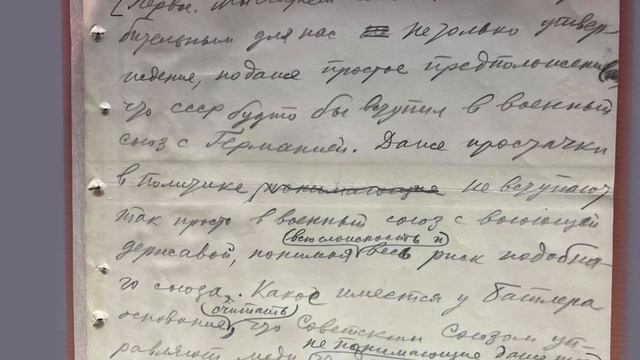 [Первое. Мы считаем
бительным для нас не только утвер-
ждение, но даже простое предположение,
что СССР будто бы вступил в военный
союз с Германией. Даже простачки
в политике понимающие не вступают
так просто в военный союз с воюющей
державой, понимая (всю сложность и) весь риск подобно-
го союза. Какое имеется у Батлера
основание (считать), что Советским Союзом уп-
равляют люди не понимающие даже